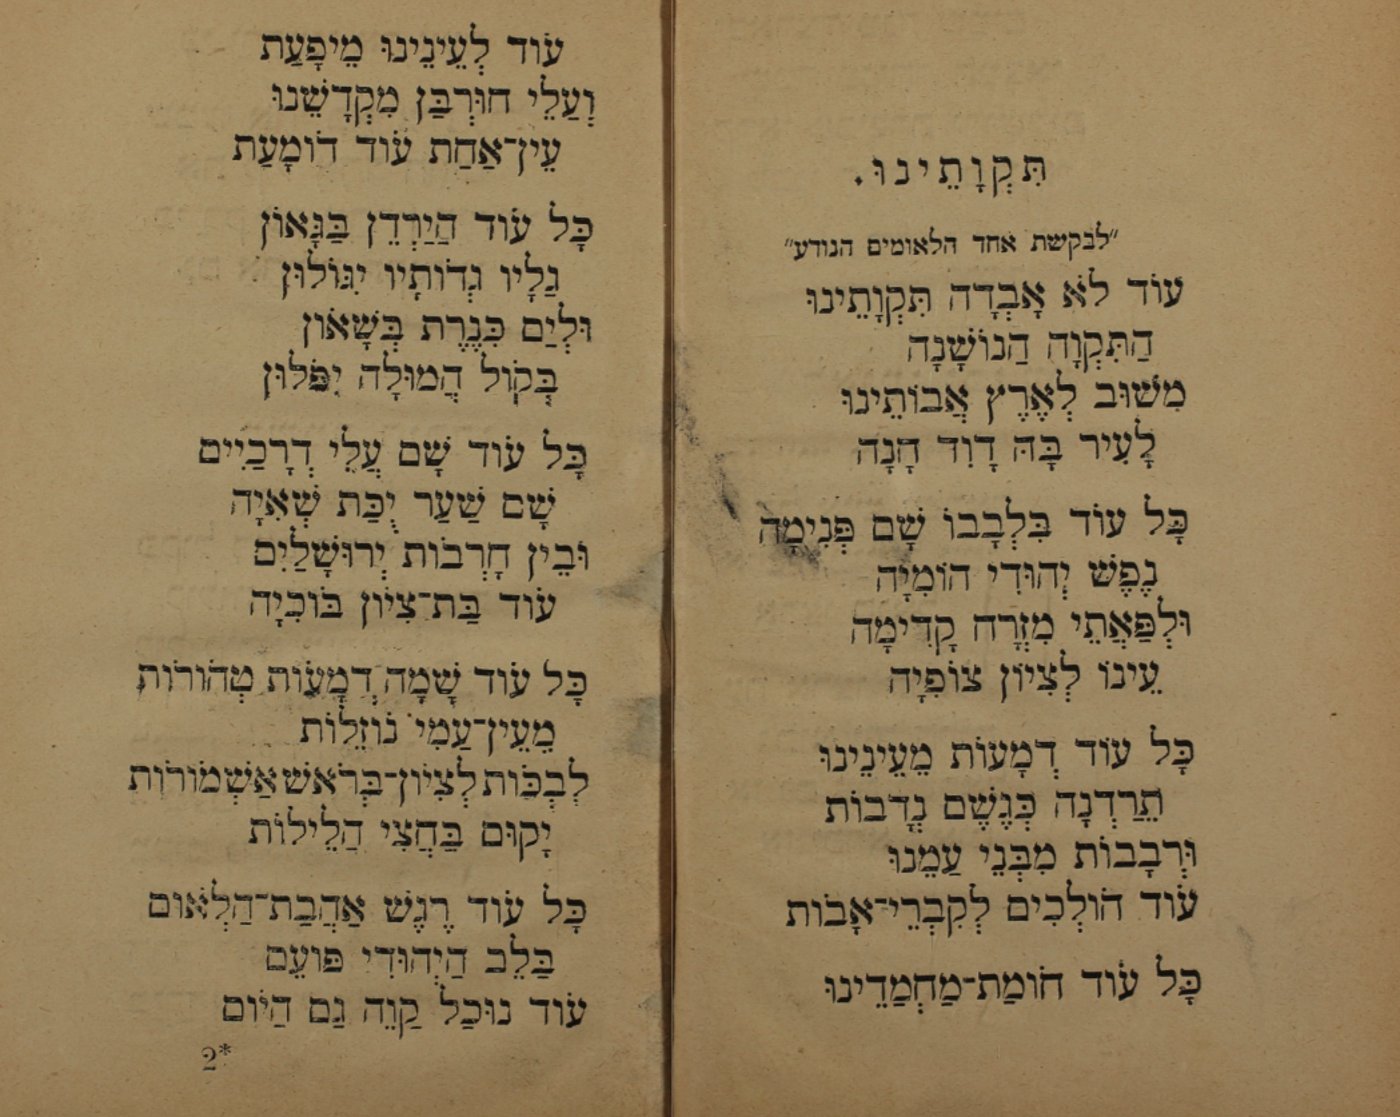 תִּקְוָתֵינוּ.
"לבקשת אחד הלאומים הנודע"
עוֹד לֹא אָבְדָה תִּקְוָתֵינוּ
הַתִּקְוָה הַנוֹשָׁנָה
מִשׁוּב לְאֶרֶץ אֲבוֹתֵינוּ
לָעִיר בָּהּ דָוִד חָנָה
כָּל עוֹד בִּלְבָבוֹ שָׁם פְּנִימָה
נֶפֶשׁ יְהוּדִי הוֹמִיָּה
וּלְפַּאֲתֵי מִזְרָח קָדִימָה
עֵינוֹ לְצִיוֹן צוֹפִיָה
כָּל עוֹד דְמָעוֹת מֵעֵינֵינוּ
תֵּרַדְנָה כְּגֶשֶׁם נְדָבוֹת
וּרְבָבוֹת מִבְּנֵי עַמֵנוּ
עוֹד הוֹלְכִים לְקִבְרֵי־אָבוֹת
כָּל עוֹד חוֹמַת־מַחְמַדֵינוּ
עוֹד לְעֵינֵינוּ מֵיפָעַת
וְעַלֵי חוּרְבַּן מִקְדָשֵׁנוּ
עֵין־אַחַת עוֹד דוֹמָעַת
כָּל עוֹד הַיַרְדֵן בַּגָאוֹן
גַלָיו גְדוֹתָיו יִגוֹלוּן
וּלְיַם כִּנֶרֶת בְּשָׁאוֹן
בְּקוֹל הֲמוּלָה יִפֹּלוּן
כָּל עוֹד שָׁם עֲלֵי דְרָכַיִים
שָׁם שַׁעַר יְכַּת שְׁאִיָה
וּבֵין חָרְבוֹת יְרוּשָׁלַיִם
עוֹד בַּת־צִיוֹן בּוֹכִיָה
כָּל עוֹד שָׁמָה דְמָעוֹת טְהוֹרוֹת
מֵעֵין־עַמִי נוֹזְלוֹת
לִבְכּוֹת לְצִיוֹן־בְּרֹאשׁ אַשְׁמוֹרוֹת
יָקוּם בַּחֲצִי הַלֵילוֹת
כָּל עוֹד רֶגֶשׁ אַהֲבַת־הַלְאוֹם
בַּלֵב הַיְהוּדִי פּוֹעֵם
עוֹד נוּכַל קַוֵה גַם הַיוֹם
2*